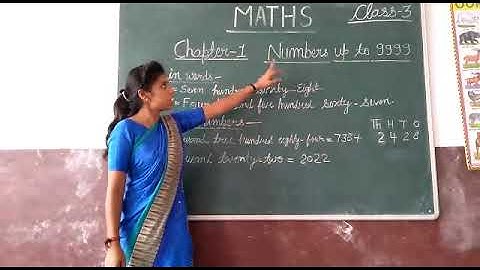 MATHS Class-3
Chapter-1 Numbers up to 9999
in words -
= Seven hundred Eight
= Four and five hundred sixty-seven
numbers - Th H T O
hundred eighty-four = 7384 2 4 2 8
twenty-two = 2022